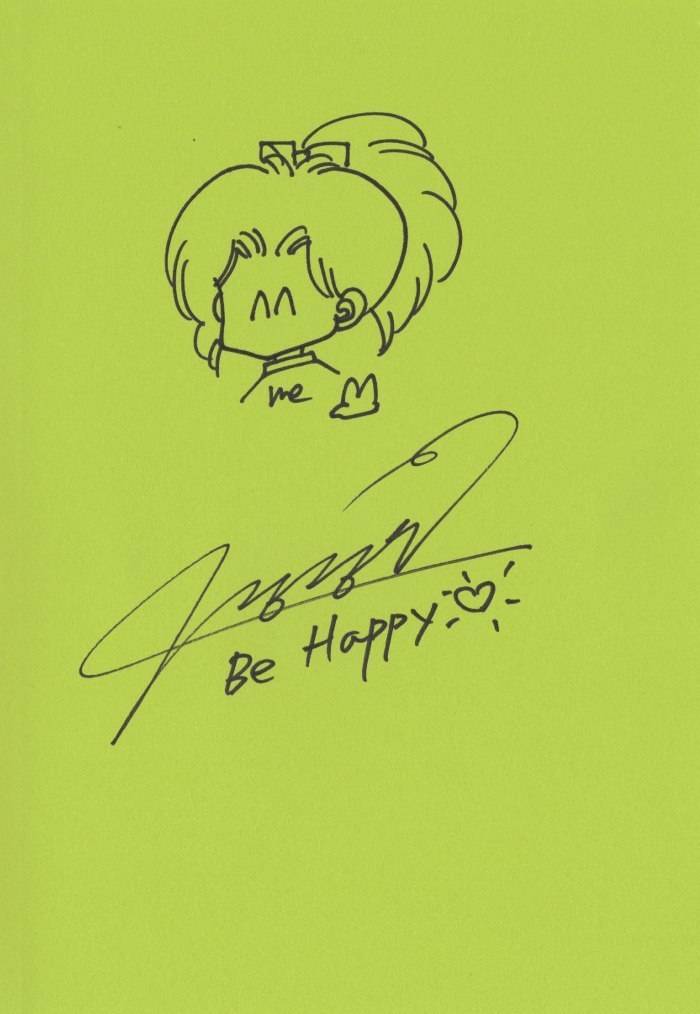 me
Be Happy